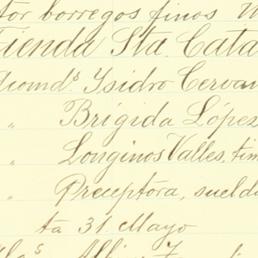 tor borregos finos
Tienda Sta Cata
Ysidro Cervan
" Brígida López
" Longinos Valles, tim
" Preceptora, sueld
ta 31 Mayo